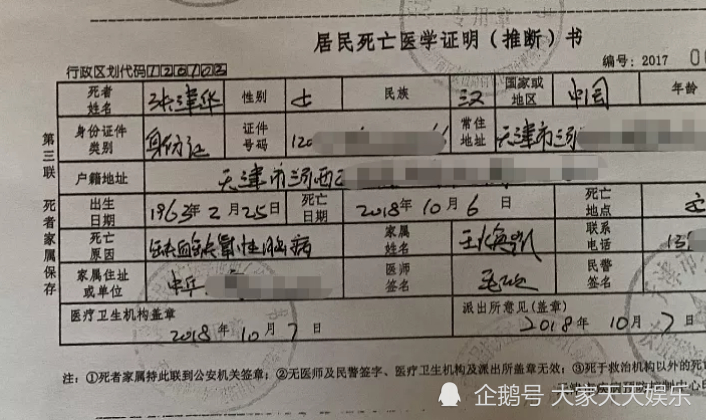 专用章
居民死亡医学证明（推断）书
行政区划代码120103
编号: 2017 0
死者姓名 张津华 性别 女 民族 汉 国家或地区 中国 年龄
身份证件类别 身份证 证件号码 120 常住地址 天津市河
户籍地址 天津市河西
出生日期 1963年2月25日 死亡日期 2018年10月6日 死亡地点
死亡原因 缺血缺氧性脑病 家属姓名 联系电话
家属住址或单位 医师签名 民警签名
医疗卫生机构盖章 派出所意见(盖章)
2018年10月7日 2018年10月7日
第三联 死者家属保存
注：①死者家属持此联到公安机关签章；②无医师及民警签字、医疗卫生机构及派出所盖章无效；③死于救治机构以外的死
企鹅号 大家天天娱乐